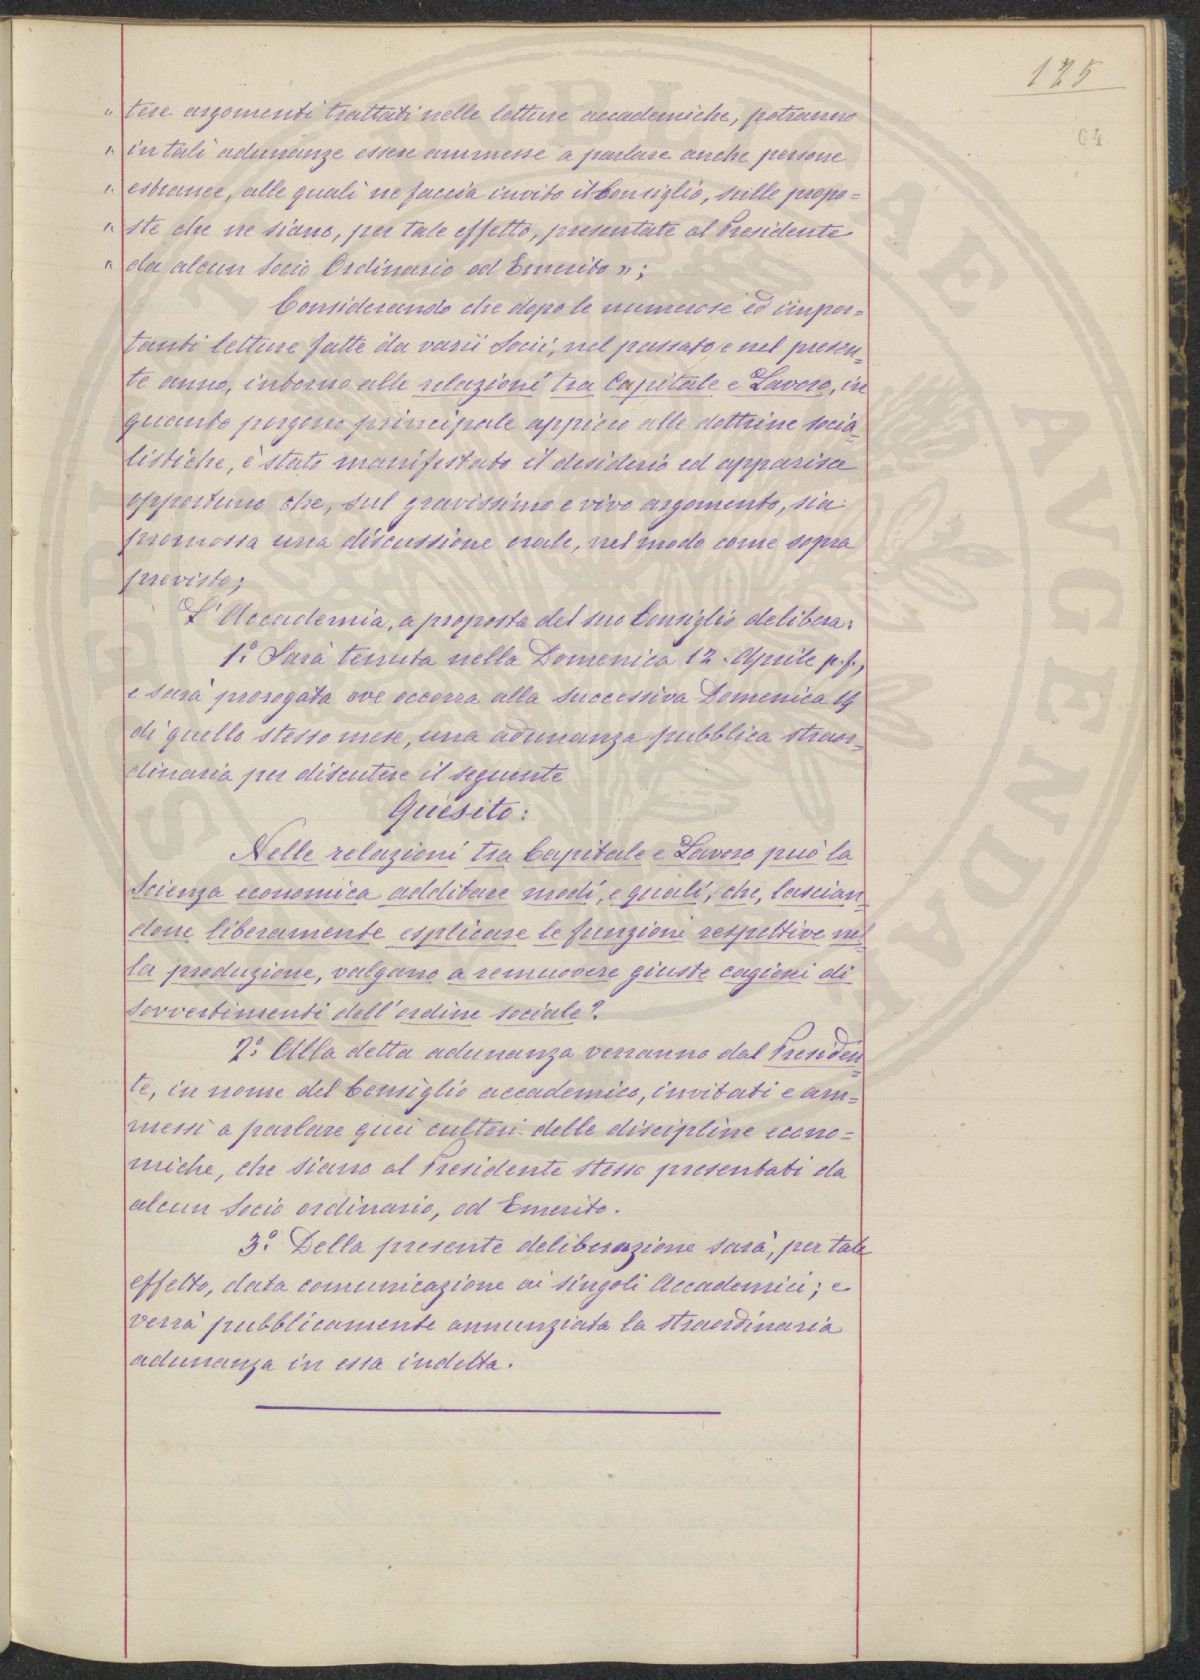 125
64
" tere argomenti trattati nelle letture accademiche, potranno
" in tali adunanze essere ammesse a parlare anche persone
" estranee, alle quali ne faccia invito il Consiglio, sulle propo=
" ste che ne siano, per tale effetto, presentate al Presidente
" da alcun Socio Ordinario od Emerito »;
Considerando che dopo le numerose ed impor=
tanti letture fatte da varii Socii, nel passato e nel presen=
te anno, intorno alle relazioni tra Capitale e Lavoro, in
quanto porgono principale appicco alle dottrine socia=
listiche, è stato manifestato il desiderio ed apparisce
opportuno che, sul gravissimo e vivo argomento, sia
promossa una discussione orale, nel modo come sopra
previsto;
L'Accademia, a proposta del suo Consiglio delibera:
1.° Sarà tenuta nella Domenica 12. Aprile p.f.,
e sarà prorogata ove occorra alla successiva Domenica 19
di quello stesso mese, una adunanza pubblica straor=
dinaria per discutere il seguente
Quesito:
Nelle relazioni tra Capitale e Lavoro può la
Scienza economica additare modi, e quali, che, lascian=
done liberamente esplicare le funzioni respettive nel=
la produzione, valgano a remuovere giuste cagioni di
sovvertimenti dell'ordine sociale?
2.° Alla detta adunanza verranno dal Presiden=
te, in nome del Consiglio accademico, invitati e am=
messi a parlare quei cultori delle discipline econo=
miche, che siano al Presidente stesso presentati da
alcun Socio ordinario, od Emerito.
3.° Della presente deliberazione sarà, per tale
effetto, data comunicazione ai singoli Accademici; e
verrà pubblicamente annunziata la straordinaria
adunanza in essa indetta.